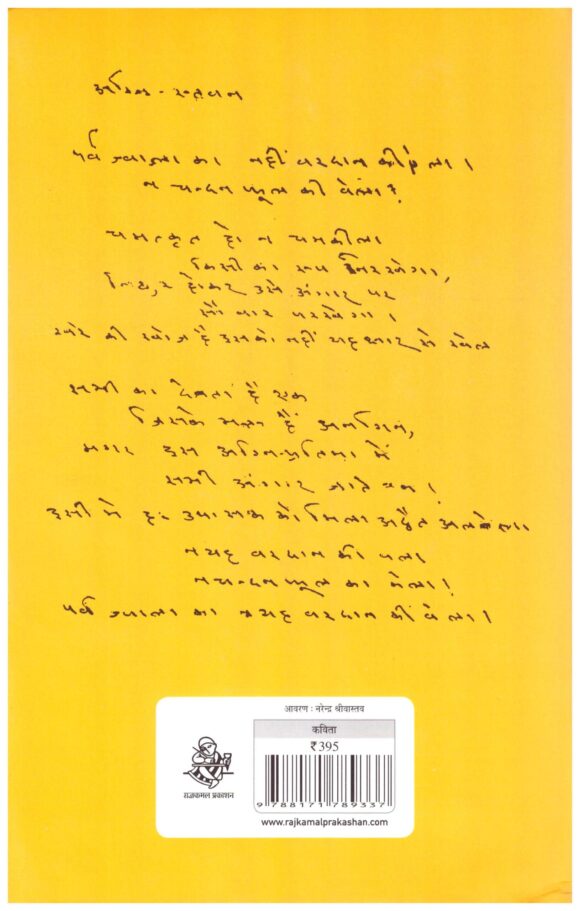 अग्नि-स्तवन
पर्व ज्वाला का नहीं वरदान की वेला।
न चन्दन फूल की वेला?
चमत्कृत हो न चमकीला
किसी का रूप निरखेगा,
निठुर होकर उसे अंगार पर
सौ बार परखेगा।
खरे की खोज है उसको नहीं यह क्षार से खेला
सभी का देवता है एक
जिसके भक्त हैं अनगिन,
मगर इस अग्नि-प्रतिमा में
सभी अंगार जाते बन।
इसी में हर उपासक को मिला अद्वैत अलबेला।
न यह वरदान की वेला
न चन्दन फूल का मेला!
पर्व ज्वाला का न यह वरदान की वेला।
आवरण : नरेन्द्र श्रीवास्तव
कविता
₹395
9788171789337
राजकमल प्रकाशन
www.rajkamalprakashan.com